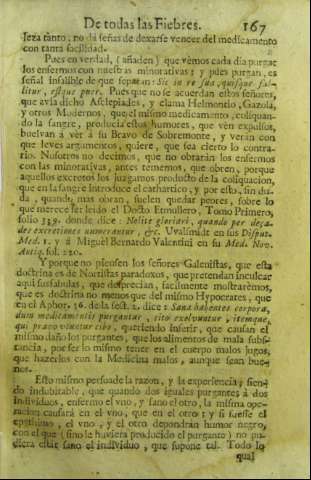 De todas las Fiebres. 167
leza tanto: no dá señas de dexarse vencer del medicamento
con tanta facilidad.
Pues en verdad, (añaden) que vèmos cada dia purgar
los enfermos con nuestras minorativas; y pues purgan, es
señal infalible de que Sic in re sua, quisque fal-
litur, estque puer. Pues que no se acuerdan estos señores,
que avia dicho Asclepiades, y clama Helmoncio, Gazola,
y otros Modernos, que el mismo medicamento, coliquan-
do la sangre, producia estos humores, que vèn expulsos,
buelvan á vèr á su Bravo de Sobremonte, y veràn con
que leves argumentos, quiere, que sea cierto lo contra-
rio. Nosotros no decimos, que no obrarán los enfermos
con las minorativas, antes tememos, que obren, porque
aquellos excretos los juzgamos producto de la coliquacion,
que en la sangre introduce el cathartico, y por esto, sin du-
da, quando mas obran, suelen quedar peores, sobre lo
que merece ser leído el Docto Etmullero, Tomo Primero,
folio 339. donde dice: Nolite gloriari, quando per deca-
des excretiones numerantur, &c. Uvalsmidt en sus Disput.
Med. 1. y á Miguèl Bernardo Valentini en su Med. Nov.
Antiq. fol. 210.
Y porque no piensen los señores Galenistas, que esta
doctrina es de Novistas paradoxos, que pretendan inculcar
aqui sus fabulas, que desprecian, facilmente mostrarèmos,
que es doctrina no menos que del mismo Hypocrates, que
en el Aphor. 36. de la sect. 2. dice: Sana habentes corpora,
dum medicamentis purgantur, cito exolvuntur, itemque,
qui pravo utuntur cibo, queriendo inferir, que causan el
mismo daño los purgantes, que los alimentos de mala subs-
tancia, por ser lo mismo tener en el cuerpo malos jugos,
que hazerlos con la Medicina malos, aunque sean bue-
nos.
Esto mismo persuade la razon, y la experiencia; sien-
do indubitable, que quando dos iguales purgantes á dos
individuos, enfermo el vno, y sano el otro, la misma ope-
racion causará en el vno, que en el otro; y si fuesse el
epathimo, el vno, y el otro depondrán humor negro,
con el que (sino le huviera producido el purgante) no pu-
diera estár sano el individuo, que supone tal. Todo lo
qual